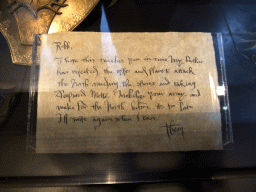 Robb,
I hope this reaches you in time. My father
has rejected the offer and plans to attack
the North reaching the shores and taking
Deepwood Motte. Mobilise your army and
make for the North before
I'll write again when I can.
Theon